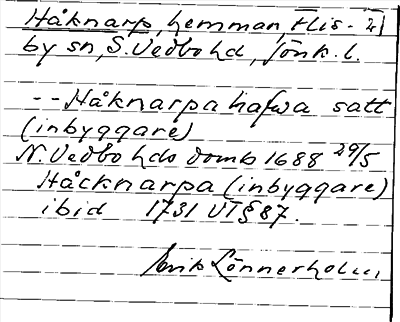 Håknarp, hemman, Flis-
by sn, S. Vedbo hd, Jönk. l.
-- Håknarpa hafwa satt
(inbyggare)
N. Vedbo hds domb 1688 29/5
Håcknarpa (inbyggare)
ibid 1731 VT § 87.
Erik Lönnerholm